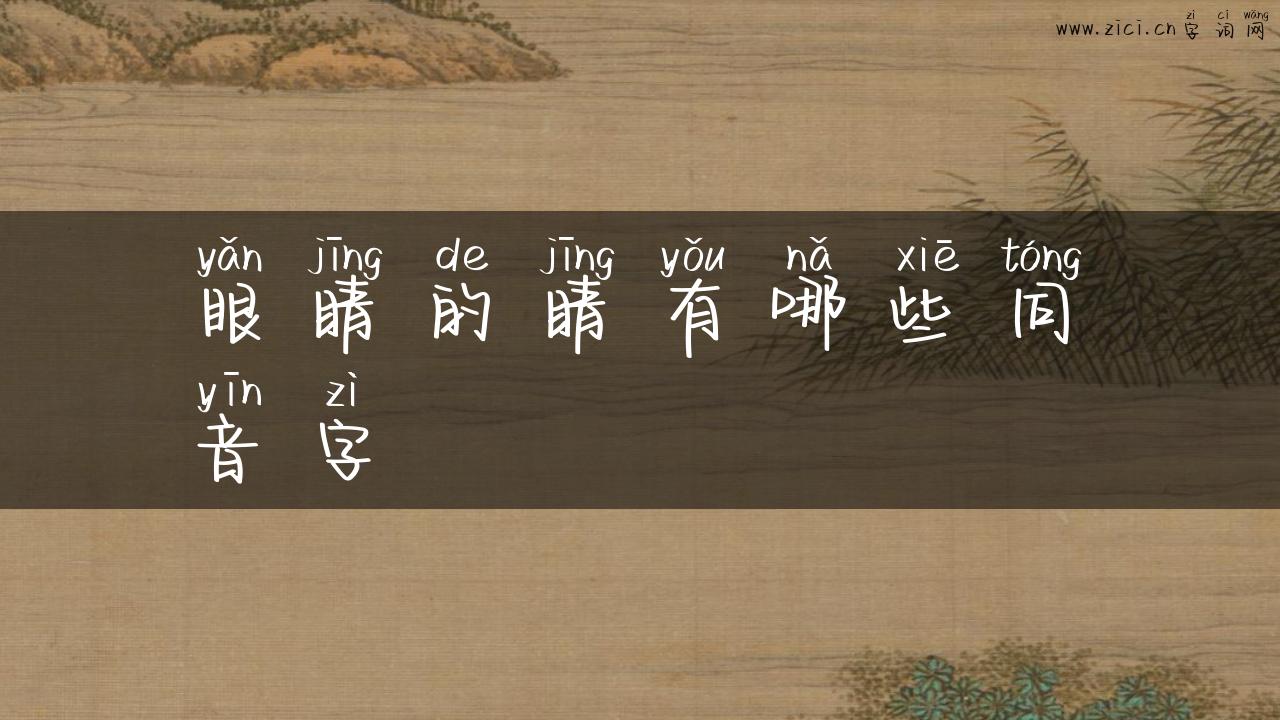 zì cí wǎng
www.zici.cn 字 词 网
yǎn jīng de jīng yǒu nǎ xiē tóng
眼 睛 的 睛 有 哪 些 同
yīn zì
音 字